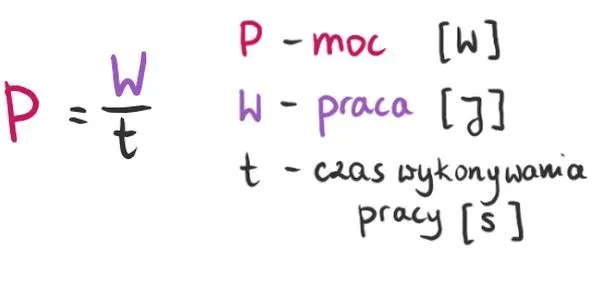 P = W/t
P - moc [W]
W - praca [J]
t - czas wykonywania
pracy [s]